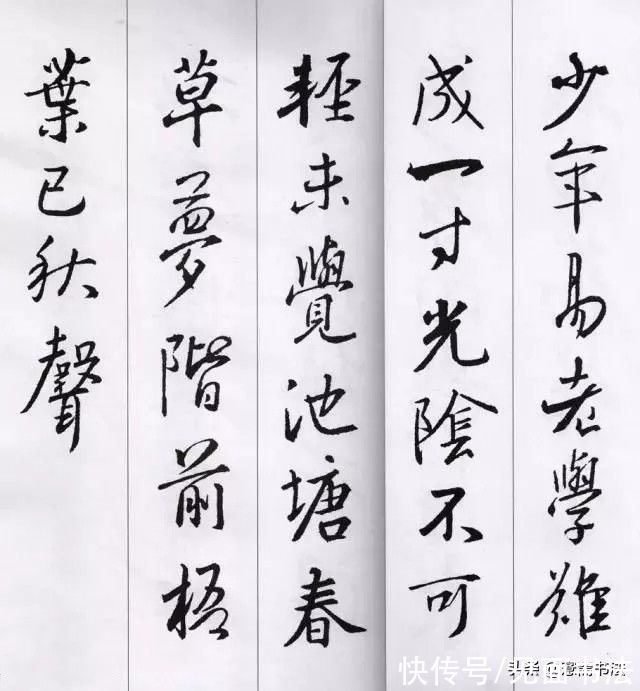 少年易老學難
成一寸光陰不可
輕未覺池塘春
草夢階前梧
葉已秋聲
快传号/